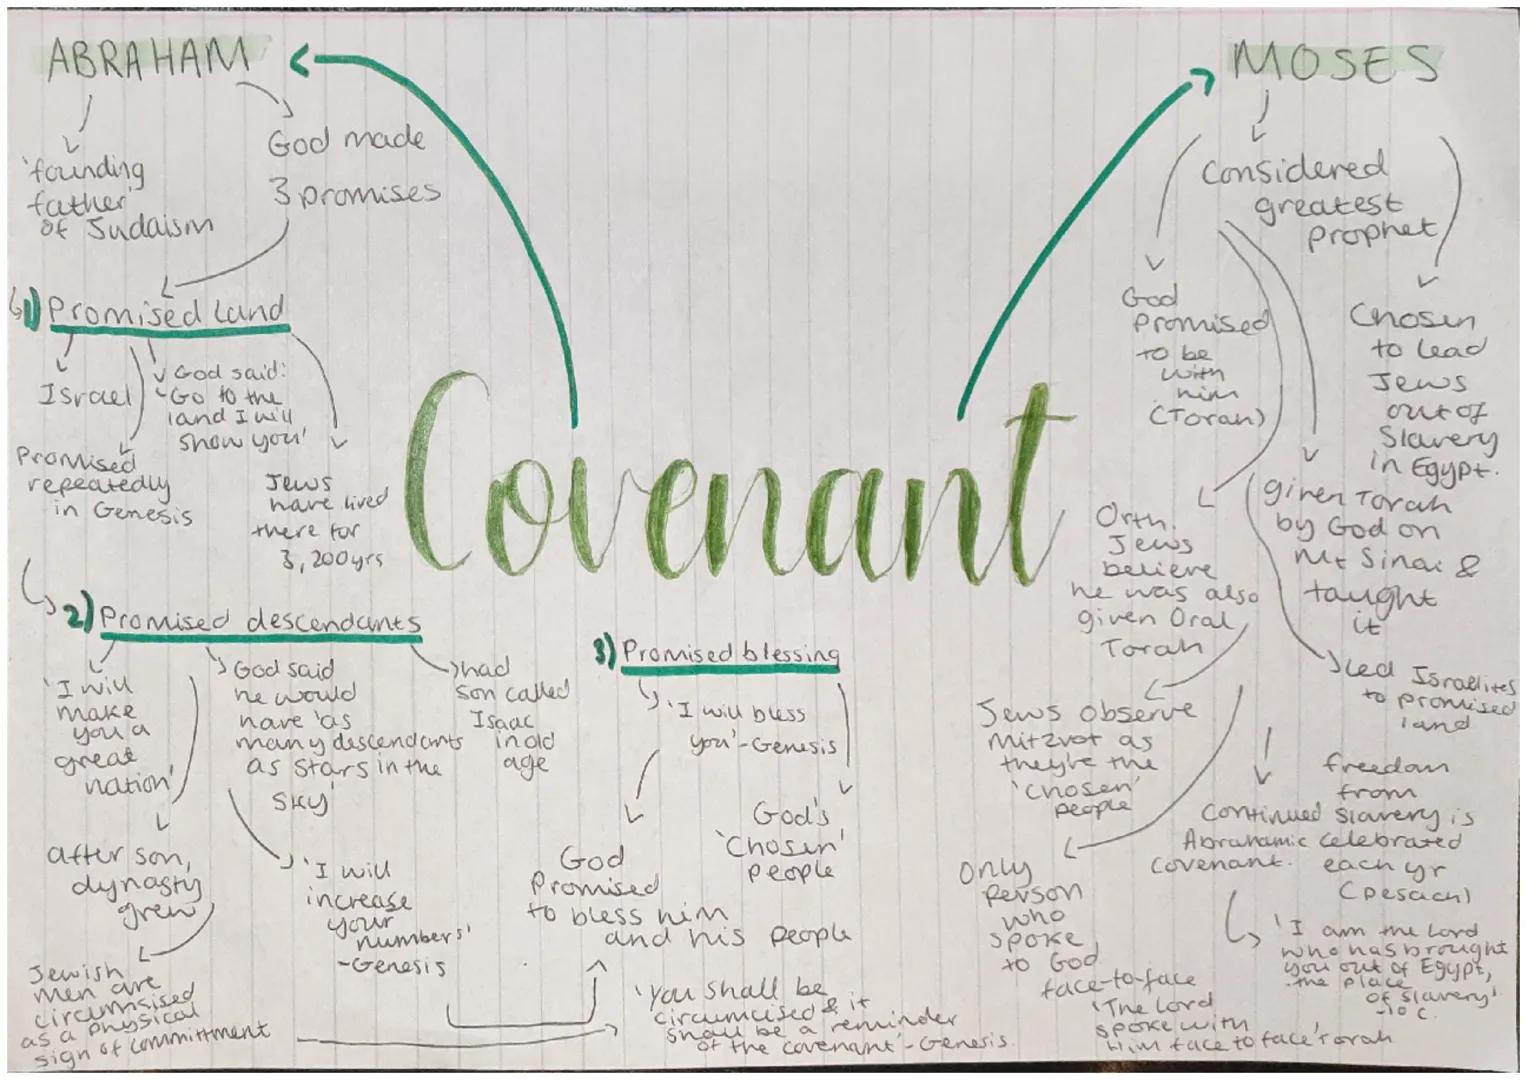 ABRAHAM
'founding
father'
of Judaism
God made
3 promises
1) Promised land
Israel
God said:
'Go to the
land I will
show you'
Promised
repeatedly
in Genesis
Jews
have lived
there for
3,200yrs
2) Promised descendants
'I will
make
you a
great
nation'
God said
he would
have 'as
many descendants
as stars in the
sky'
had
son called
Isaac
in old
age
after son,
dynasty
grew
'I will
increase
your
numbers'
-Genesis
Jewish
men are
circumsised
as a physical
sign of committment
Covenant
3) Promised blessing
'I will bless
you'-Genesis
God
Promised
to bless him
and his people
God's
'Chosen'
people
'You shall be
circumcised & it
shall be a reminder
of the covenant'-Genesis
MOSES
Considered
greatest
prophet
God
Promised
to be
with
him
(Torah)
Chosen
to lead
Jews
out of
Slavery
in Egypt.
Orth.
Jews
believe
he was also
given Oral
Torah
given Torah
by God on
Mt Sinai &
taught
it
Led Israelites
to promised
land
Jews observe
Mitzvot as
they're the
'chosen'
people
Continued
Abrahamic
covenant.
freedom
from
Slavery is
celebrated
each yr
(Pesach)
Only
Person
who
spoke
to God
face-to-face
'The Lord
spoke with
Him face to face' Torah
'I am the Lord
who has brought
you out of Egypt,
the place
of slavery'
-10 C.